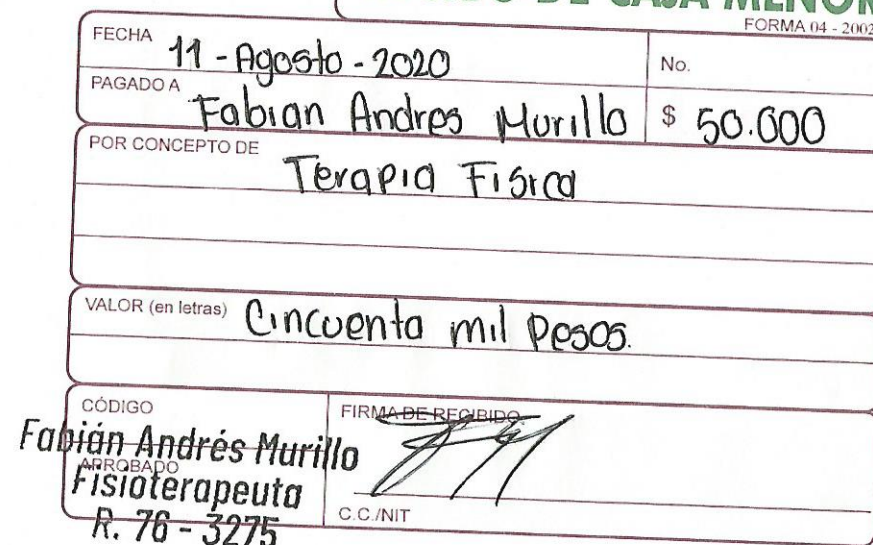 DE CAJA MENOR
FORMA 04 - 2002
FECHA 11 - Agosto - 2020
No.
PAGADO A Fabian Andres Murillo $ 50.000
POR CONCEPTO DE Terapia Fisica
VALOR (en letras) Cincuenta mil pesos.
CÓDIGO
FIRMA DE RECIBIDO
Fabián Andrés Murillo
APROBADO
Fisioterapeuta
R. 76 - 3275
C.C./NIT